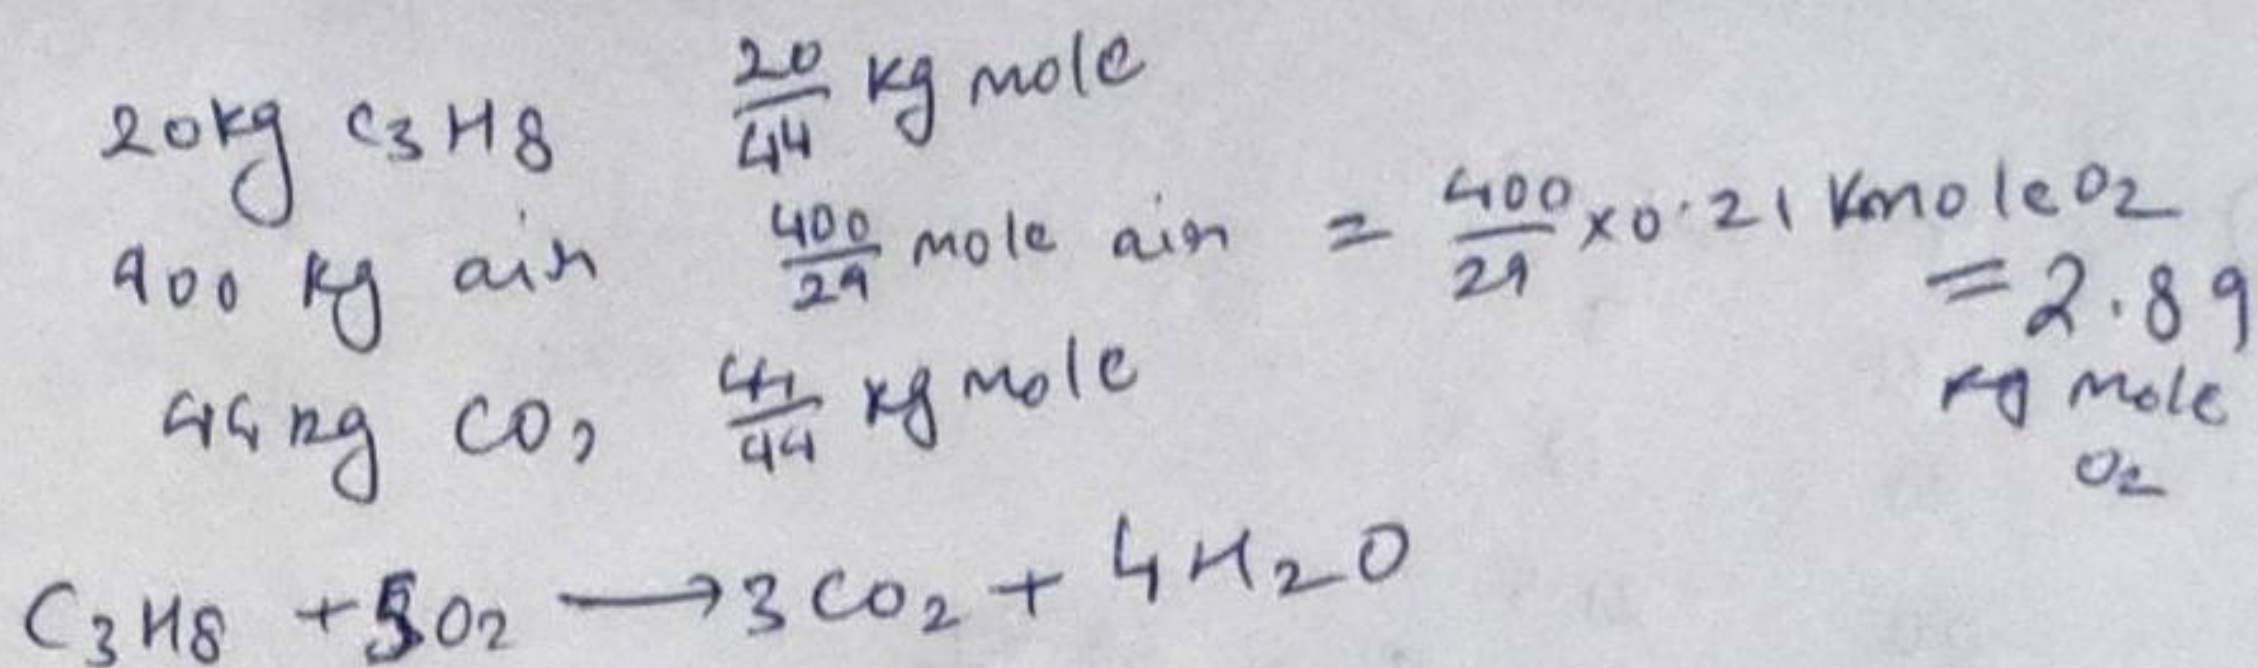 20kg C3H8 20/44 kg mole
400 kg air 400/29 mole air = 400/29 x0.21 Kmole O2
= 2.89 kg mole O2
44 kg CO2 44/44 kg mole
C3H8 + 5O2 → 3CO2 + 4H2O